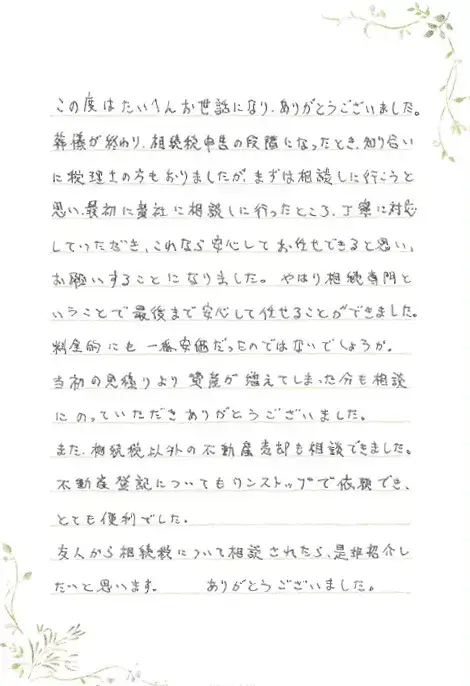 この度はたいへんお世話になり、ありがとうございました。
葬儀が終わり、相続税申告の段階になったとき、知り合い
に税理士の方もおりましたが、まずは相談しに行こうと
思い、最初に貴社に相談しに行ったところ、丁寧に対応
していただき、これなら安心してお任せできると思い、
お願いすることになりました。やはり相続専門と
いうことで最後まで安心して任せることができました。
料金的にも一番安価だったのではないでしょうか。
当初の見積りより資産が増えてしまった分も相談
にのっていただきありがとうございました。
また、相続税以外の不動産売却も相談できました。
不動産登記についてもワンストップで依頼でき、
とても便利でした。
友人から相続税について相談されたら、是非紹介し
たいと思います。　ありがとうございました。